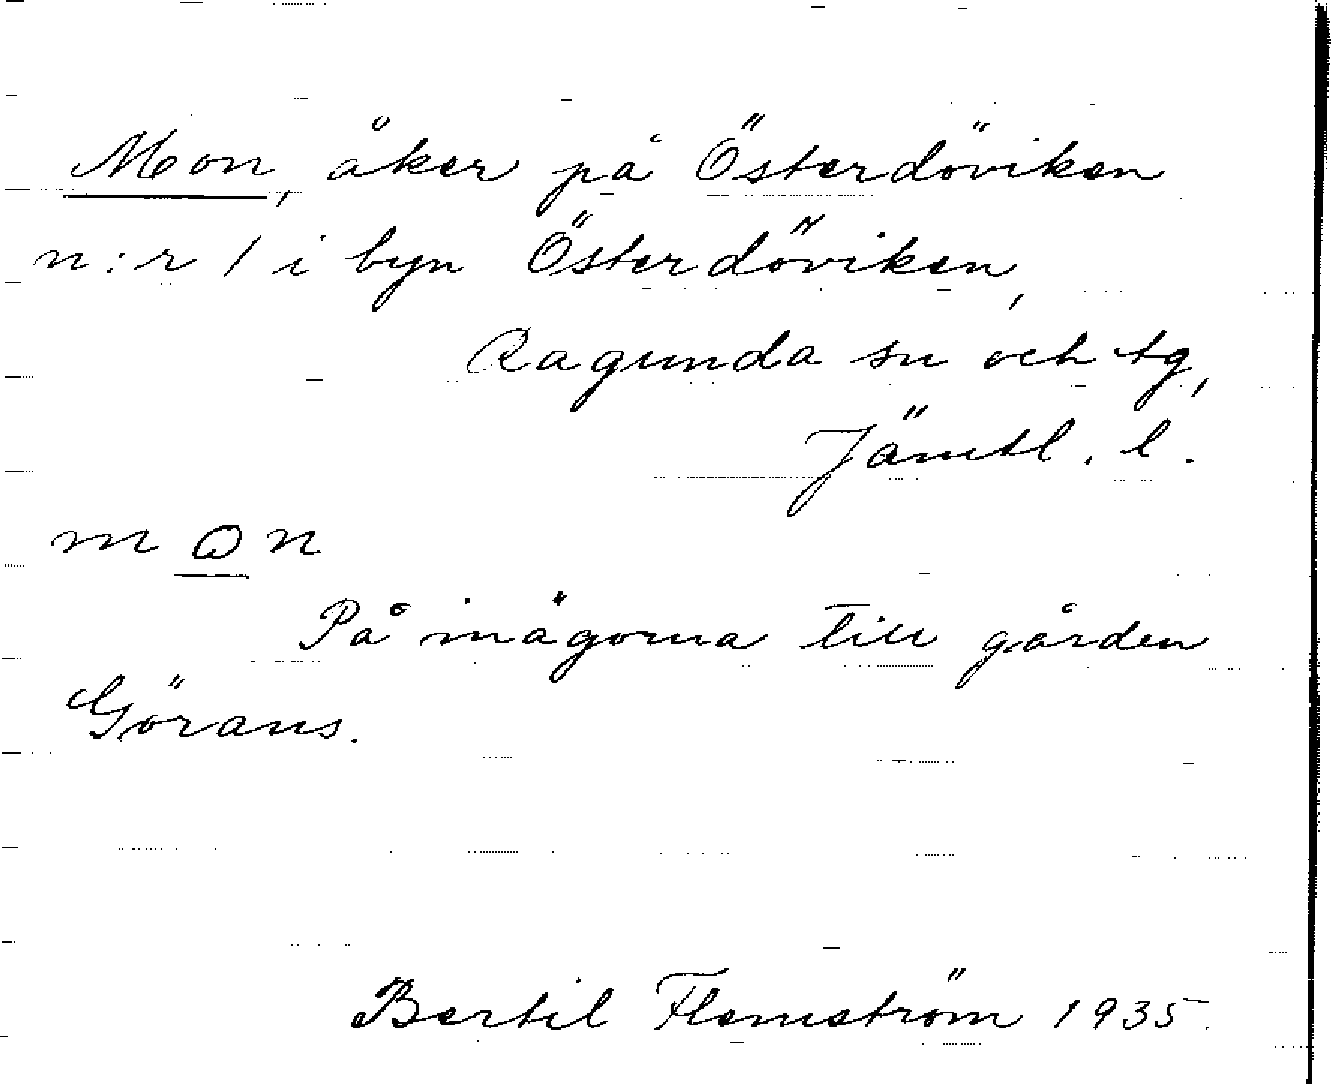 Mon, åker på Österdöviken
n:r 1 i byn Österdöviken,
Ragunda sn och tg,
Jämtl. l.
m o n
På inägorna till gården
Görans.
Bertil Flemström 1935.